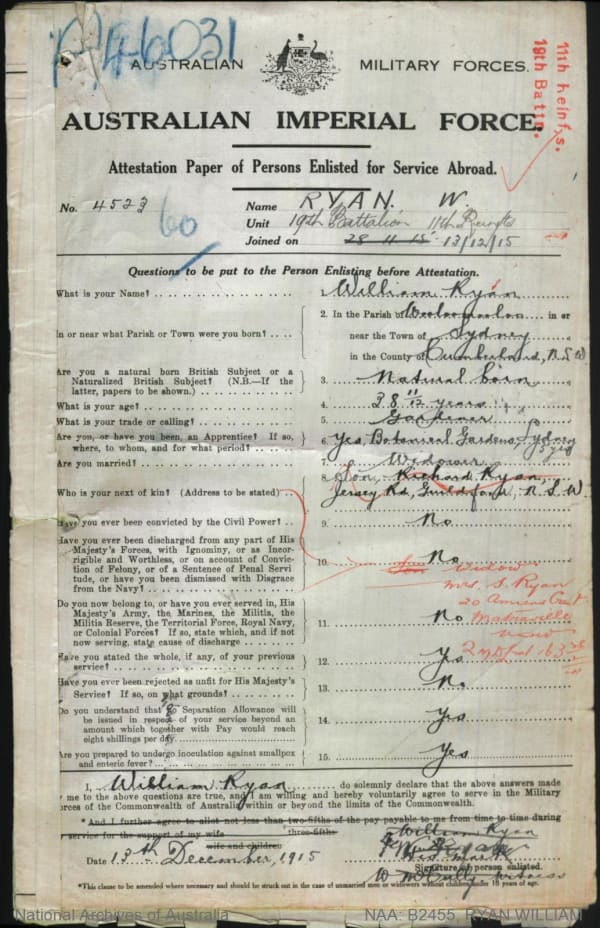 46031
AUSTRALIAN MILITARY FORCES.
11th Reinf's.
19th Battn.
AUSTRALIAN IMPERIAL FORCE.
Attestation Paper of Persons Enlisted for Service Abroad.
No. 4523 Name RYAN. W.
60
Unit 19th Battalion 11th Reinfts
Joined on 28 11 15 13/12/15
Questions to be put to the Person Enlisting before Attestation.
What is your Name? 1. William Ryan
In or near what Parish or Town were you born? 2. In the Parish of Woolloomooloo in or
near the Town of Sydney
in the County of Cumberland, N.S.W
Are you a natural born British Subject or a
Naturalized British Subject? (N.B.—If the
latter, papers to be shown.) 3. Natural born
What is your age? 4. 38 years
What is your trade or calling? 5. Gardener
Are you, or have you been, an Apprentice? If so,
where, to whom, and for what period? 6. Yes, Botanical Gardens, Sydney
5 yrs
Are you married? 7. Widower
Who is your next of kin? (Address to be stated) 8. Son, Richard Ryan,
Jersey Rd, Guildford, N.S.W.
Have you ever been convicted by the Civil Power? 9. No
Have you ever been discharged from any part of His
Majesty's Forces, with Ignominy, or as Incor-
rigible and Worthless, or on account of Convic-
tion of Felony, or of a Sentence of Penal Servi
tude, or have you been dismissed with Disgrace
from the Navy? 10. No
Son Widow
Mrs. S. Ryan
20 Court
Do you now belong to, or have you ever served in, His
Majesty's Army, the Marines, the Militia, the
Militia Reserve, the Territorial Force, Royal Navy,
or Colonial Forces? If so, state which, and if not
now serving, state cause of discharge 11. No
Have you stated the whole, if any, of your previous
service? 12. Yes
Have you ever been rejected as unfit for His Majesty's
Service? If so, on what grounds? 13. No
Do you understand that no Separation Allowance will
be issued in respect of your service beyond an
amount which together with Pay would reach
eight shillings per day 14. Yes
Are you prepared to undergo inoculation against smallpox
and enteric fever? 15. Yes
I, William Ryan do solemnly declare that the above answers made
by me to the above questions are true, and I am willing and hereby voluntarily agree to serve in the Military
Forces of the Commonwealth of Australia within or beyond the limits of the Commonwealth.
*And I further agree to allot not less than two-fifths of the pay payable to me from time to time during
three-fifths
my service for the support of my wife
wife and children
William Ryan
His Mark
Date 13th December, 1915
Signature of person enlisted.
Witness
*This clause to be amended where necessary and should be struck out in the case of unmarried men or widowers without children under 18 years of age.
National Archives of Australia NAA: B2455, RYAN WILLIAM